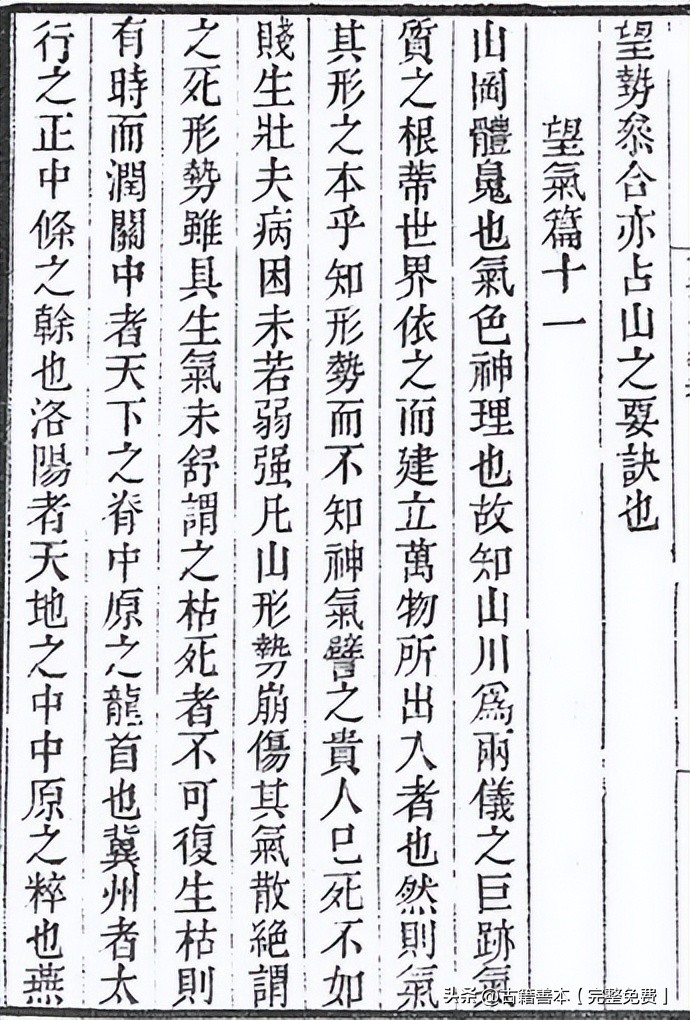 望勢叅合亦占山之要訣也
望氣篇十一
山岡體魄也氣色神理也故知山川爲兩儀之巨跡氣
質之根蒂世界依之而建立萬物所出入者也然則氣
其形之本乎知形勢而不知神氣譬之貴人已死不如
賤生壯夫病困未若弱强凡山形勢崩傷其氣散絶謂
之死形勢雖具生氣未舒謂之枯死者不可復生枯則
有時而潤關中者天下之脊中原之龍首也冀州者太
行之正中條之幹也洛陽者天地之中中原之粹也燕
头条@古籍善本【完整免费】